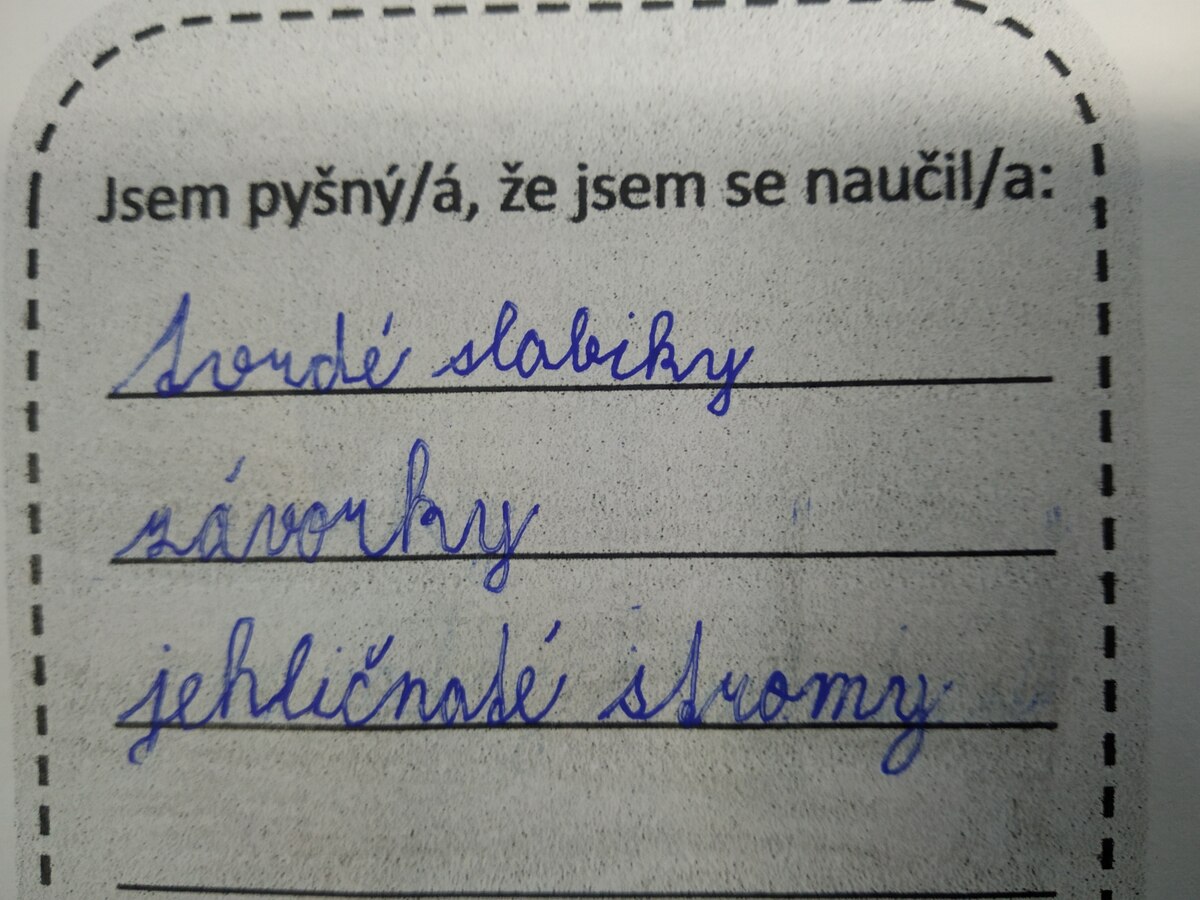 Jsem pyšný/á, že jsem se naučil/a:
tvrdé slabiky
závorky
jehličnaté stromy